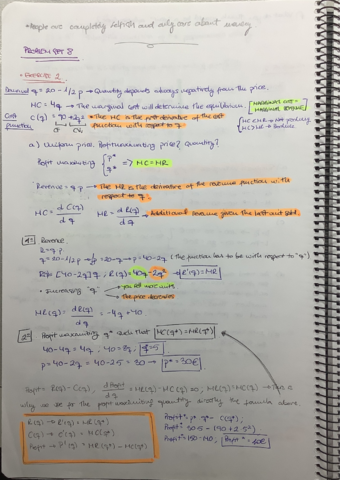 • People are completely selfish and only care about money
PROBLEM SET 8
• EXERCISE 2
Demand q = 20 - 1/2 p → Quantity depends always negatively from the price.
MC = 4q → The marginal cost will determine the equilibrium. [MARGINAL COST = MARGINAL REVENUE]
Cost function C(q) = 90 + 2q² • The MC is the first derivative of the cost function with respect to "q"
MC > MR → Produce
a.) Uniform price. Profit maximizing price? Quantity?
Profit maximizing { p* q* => MC = MR
Revenue = q·p → The MR is the derivative of the revenue function with respect to "q".
MC = d C(q) / d q MR = d R(q) / d q → Additional revenue given the last unit sold.
1º Revenue
q = 20 - 1/2 p → 1/2 p = 20 - q → p = 40 - 2q (the function has to be with respect to "q")
R(q) = (40 - 2q) q; R(q) = 40q - 2q² → R'(q) = MR
• Increasing "q"
→ The price decreases
MR(q) = dR(q) / dq = -4q + 40
2º Profit maximizing q* such that MC(q*) = MR(q*)
40 - 4q = 4q; 40 = 8q; q* = 5
p = 40 - 2q = 40 - 2·5 = 30 → p* = 30€
Profit = R(q) - C(q); d Profit / dq = MR(q) - MC(q) = 0; MR(q) = MC(q) → This is
why we set the profit maximizing quantity using the formula above.
R(q) → R'(q) = MR(q)
C(q) → C'(q) = MC(q)
Profit → P'(q) = MR(q) - MC(q)
Profit* = p* · q* - C(q*)
Profit* = 30·5 - (90 + 2·5²)
Profit* = 150 - 140; Profit* = 10€